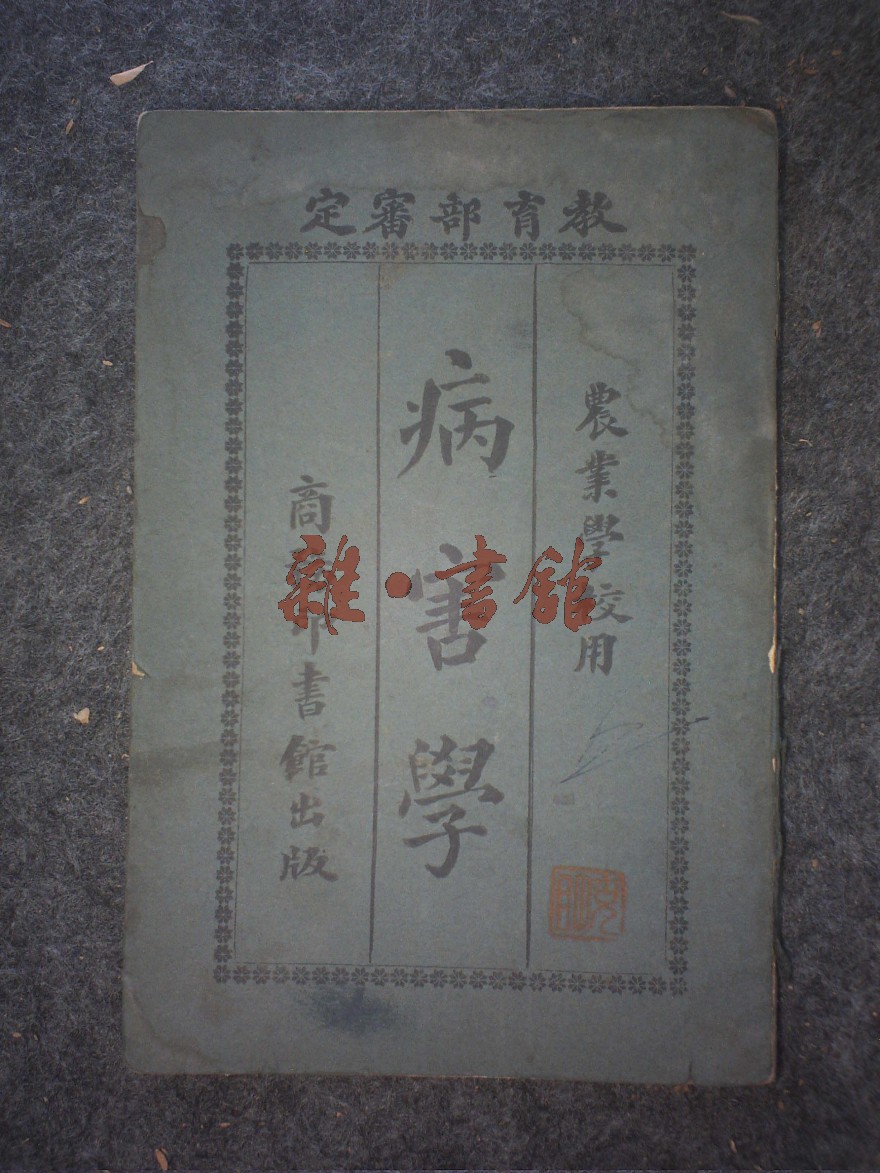 教育部審定
農業學校用
病害學
商務印書館出版
雜·書館